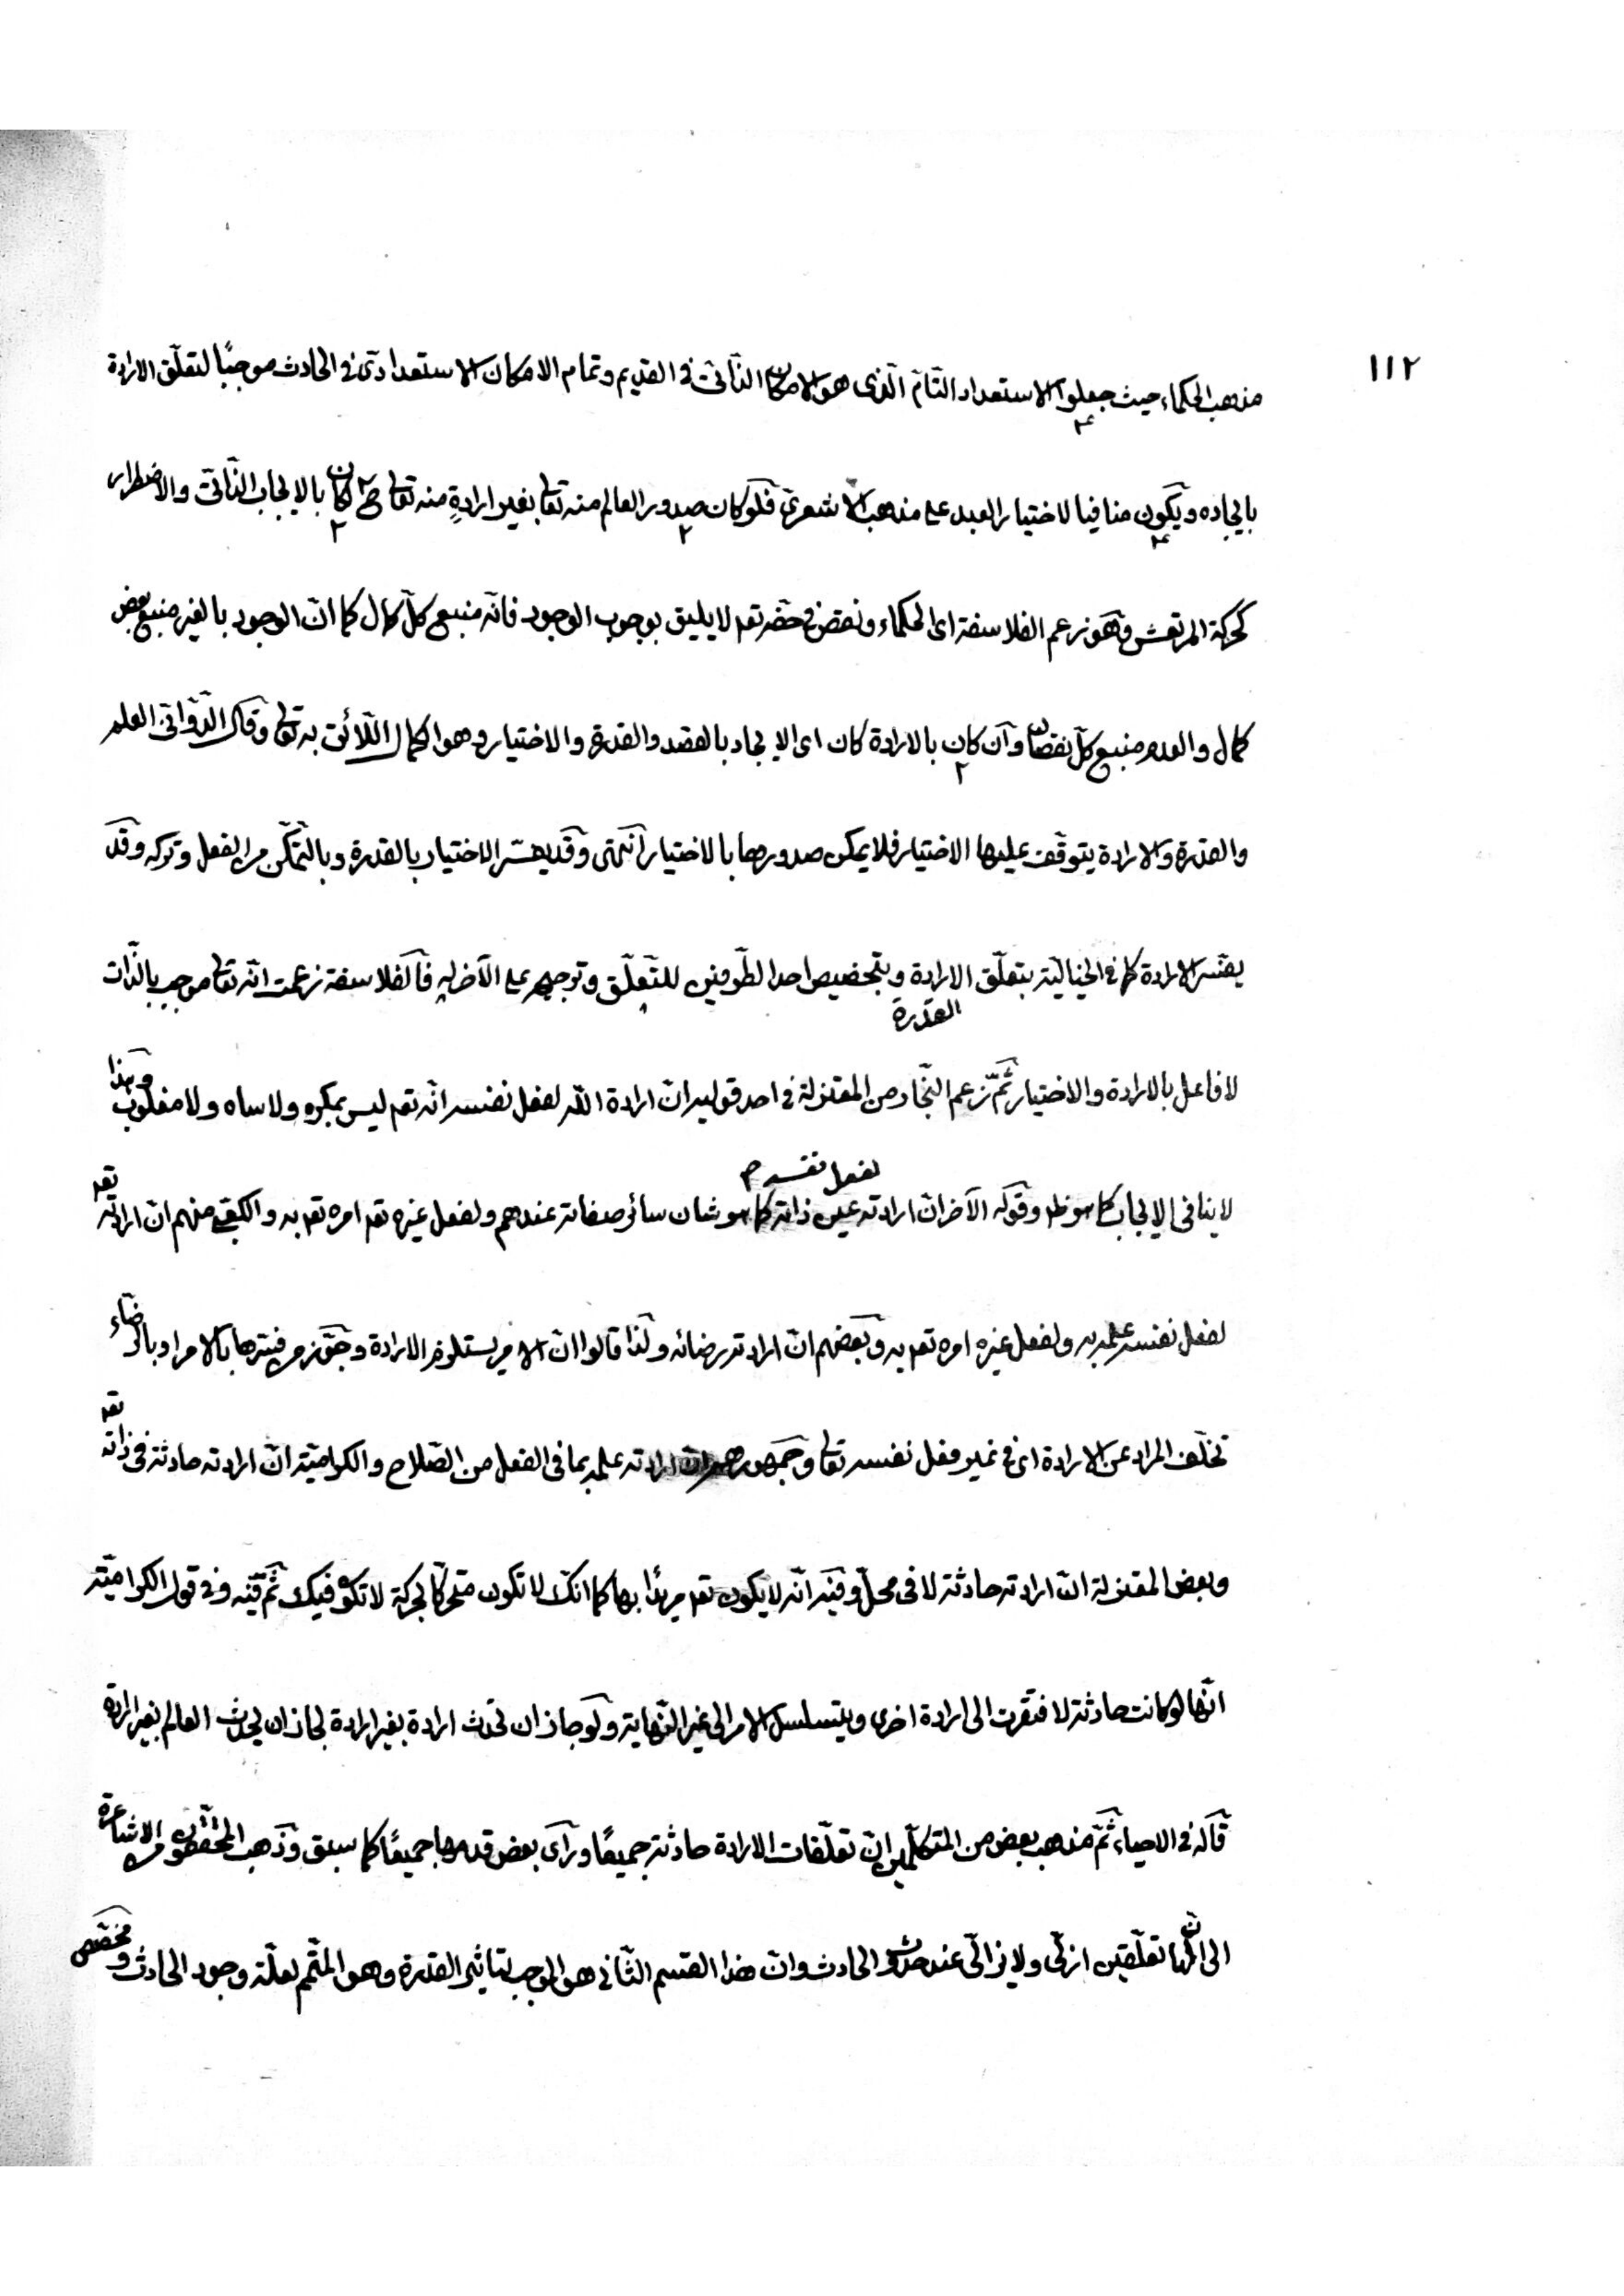 ١١٢
مذهب الحكماء حيث جعلوا الاستعداد التّامّ الّذى هو الامكان الذّاتىّ فى القديم وتمام الامكان الاستعدادىّ فى الحادث موجبًا لتعلّق الارادة
بايجاده ويكون منافيا لاختيار العبد على مذهب الاشعرىّ فلو كان صدور العالم منه تعالى بغير ارادةٍ منه تعالى ح لكان بالايجاب الذّاتىّ والاضطرار
كحركة المرتعش وهو زعم الفلاسفة اى الحكماء ونقض فى حقّه تعه لا يليق بوجوب الوجود فانّه منبع كلّ كمال كما انّ الوجود بالغير منبع بعض
كمال والعدم منبع كلّ نقصان وان كان بالارادة كان اى الايجاد بالقصد والقدرة والاختيار وهو الكمال اللّائق به تعالى وقال الدّوّانىّ العلم
والقدرة والارادة يتوقّف عليها الاختيار فلا يمكن صدورها بالاختيار انتهى وقد يفسّر الاختيار بالقدرة وبالتّمكّن من الفعل وتركه وقد
يفسّر الارادة كما فى الخياليّة بتعلّق الارادة وبتخصيص احد الطّرفين للتّعلّق وترجيحه على الآخر فالفلاسفة زعمت انّه تعالى موجب بالذّات
القدرة
لا فاعل بالارادة والاختيار ثمّ زعم النّجّار من المعتزلة فى احد قوليه انّ ارادة اللّه لفعل نفسه انّه تعه ليس بمكره ولا ساه ولا مغلوب وهذا
لفعل نفسه
لا ينافى الايجاب كما هو ظ وقوله الآخر انّ ارادته عين ذاته كما هو شان سائر صفاته عندهم ولفعل غيره تعه امره تعه به والكعبى منهم انّ ارادته تعه
لفعل نفسه علمه به ولفعل غيره امره تعه به وبعضهم انّ ارادته رضائه ولذا قالوا انّ الامر يستلزم الارادة وجوّز من فسّرها بالامر او بالرّضاء
تخلّف المراد عن الارادة اى فى غير فعل نفسه تعالى وجمهورهم انّ ارادته علمه بما فى الفعل من الصّلاح والكراميّة انّ ارادته حادثة فى ذاته تعه
وبعض المعتزلة انّ ارادته حادثة لا فى محلّ وفيه انّه لا يكون تعه مريدًا بها كما انّك لا تكون متحركًا بحركة لا تكون فيك ثمّ فيه وفى قول الكراميّة
انّها لو كانت حادثة لافتقرت الى ارادة اخرى ويتسلسل الامر الى غير النّهاية ولو جاز ان تحدث ارادة بغير ارادة لجاز ان يحدث العالم بغير ارادة
قاله فى الاحياء ثمّ مذهب بعض من المتكلّمين انّ تعلّقات الارادة حادثة جميعًا ورأى بعض قدمها جميعًا كما سبق وذهب المحقّقون من الاشاعرة
الى انّ لها تعلّقين ازلىّ ولا يزالىّ عند حدوث الحادث وانّ هذا القسم الثّانى هو الموجب لتاثير القدرة وهو المتمّم لعلّة وجود الحادث ومخصّص